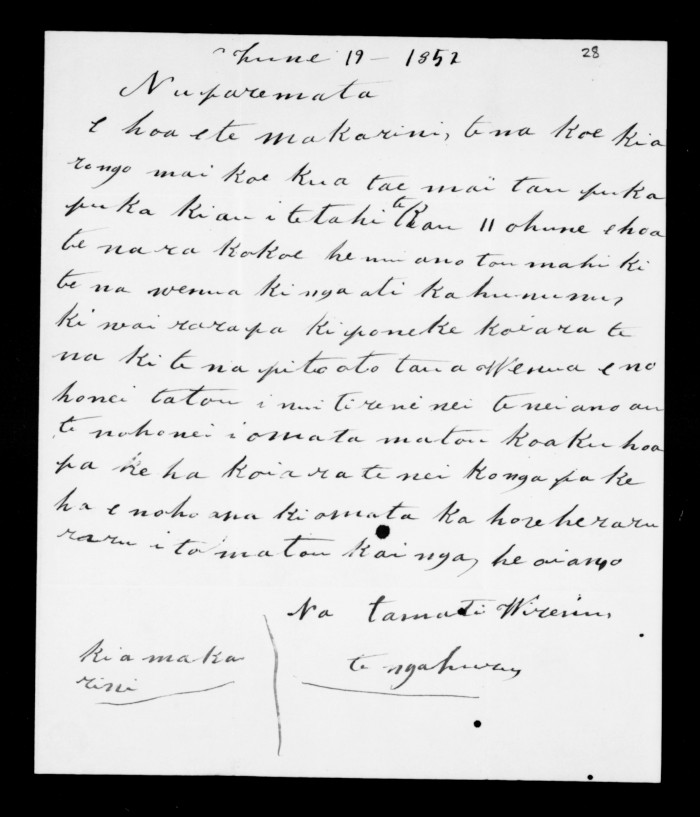 June 19 - 1852
28
Nuparemata
e hoa e te makarini, tena koe kia
rongo mai koe kua tae mai tau puka
puka ki au i te tahi te Rau 11 ohune e hoa
te na ra kokoe he nui ano tou mahi ki
te na wenua ki nga ati kahununu,
ki wai rarapa ki poneke koiara te
na ki te na pito oto taua Wenua e no
honei tatou i nui tireni nei te nei ano au
te nohonei i omata matou koaku hoa
pa ke ha koia ra te nei konga pa ke
ha e noho ana ki omata ka hore he raru
raru i to matou kai nga, he oi ano
Na tamati Wiremu
te ngahuru
kia maka
rini